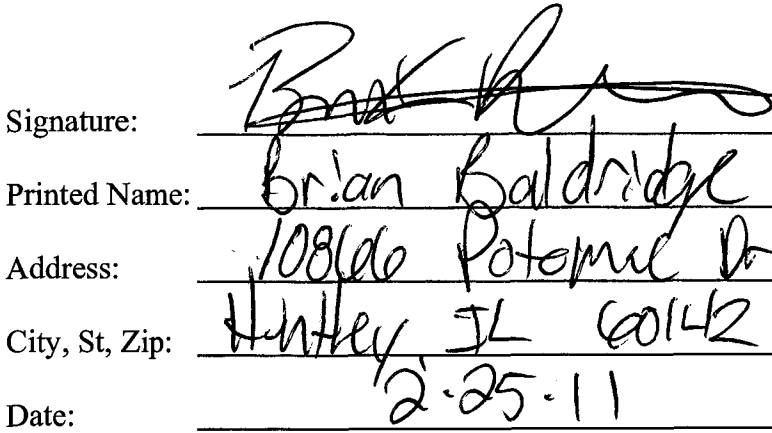 Signature:
Printed Name: Brian Baldridge
Address: 10866 Potomac Dr
City, St, Zip: Huntley IL 60142
Date: 2.25.11